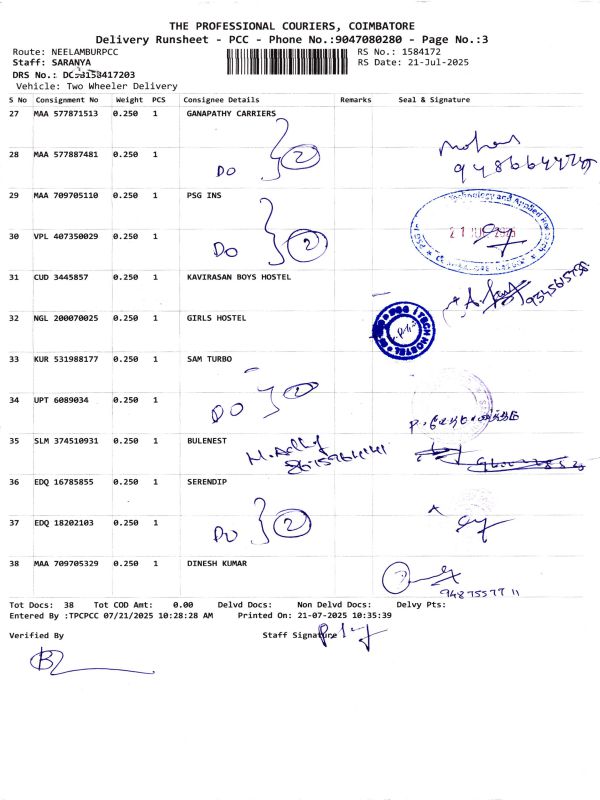 THE PROFESSIONAL COURIERS, COIMBATORE
Delivery Runsheet - PCC - Phone No.:9047080280 - Page No.:3
Route: NEELAMBURPCC RS No.: 1584172
Staff: SARANYA RS Date: 21-Jul-2025
DRS No.:
Vehicle: Two Wheeler Delivery
S No Consignment No Weight PCS Consignee Details Remarks Seal & Signature
27 MAA 577871513 0.250 1 GANAPATHY CARRIERS
28 MAA 577887481 0.250 1
DO 2
29 MAA 709705110 0.250 1 PSG INS
30 VPL 407350029 0.250 1
DO 2
31 CUD 3445857 0.250 1 KAVIRASAN BOYS HOSTEL
32 NGL 200070025 0.250 1 GIRLS HOSTEL
33 KUR 531988177 0.250 1 SAM TURBO
34 UPT 6089034 0.250 1
DO
35 SLM 374510931 0.250 1 BULENEST
36 EDQ 16785855 0.250 1 SERENDIP
37 EDQ 18202103 0.250 1
DO 2
38 MAA 709705329 0.250 1 DINESH KUMAR
Tot Docs: 38 Tot COD Amt: 0.00 Delvd Docs: Non Delvd Docs: Delvy Pts:
Entered By :TPCPCC 07/21/2025 10:28:28 AM Printed On: 21-07-2025 10:35:39
Verified By Staff Signature